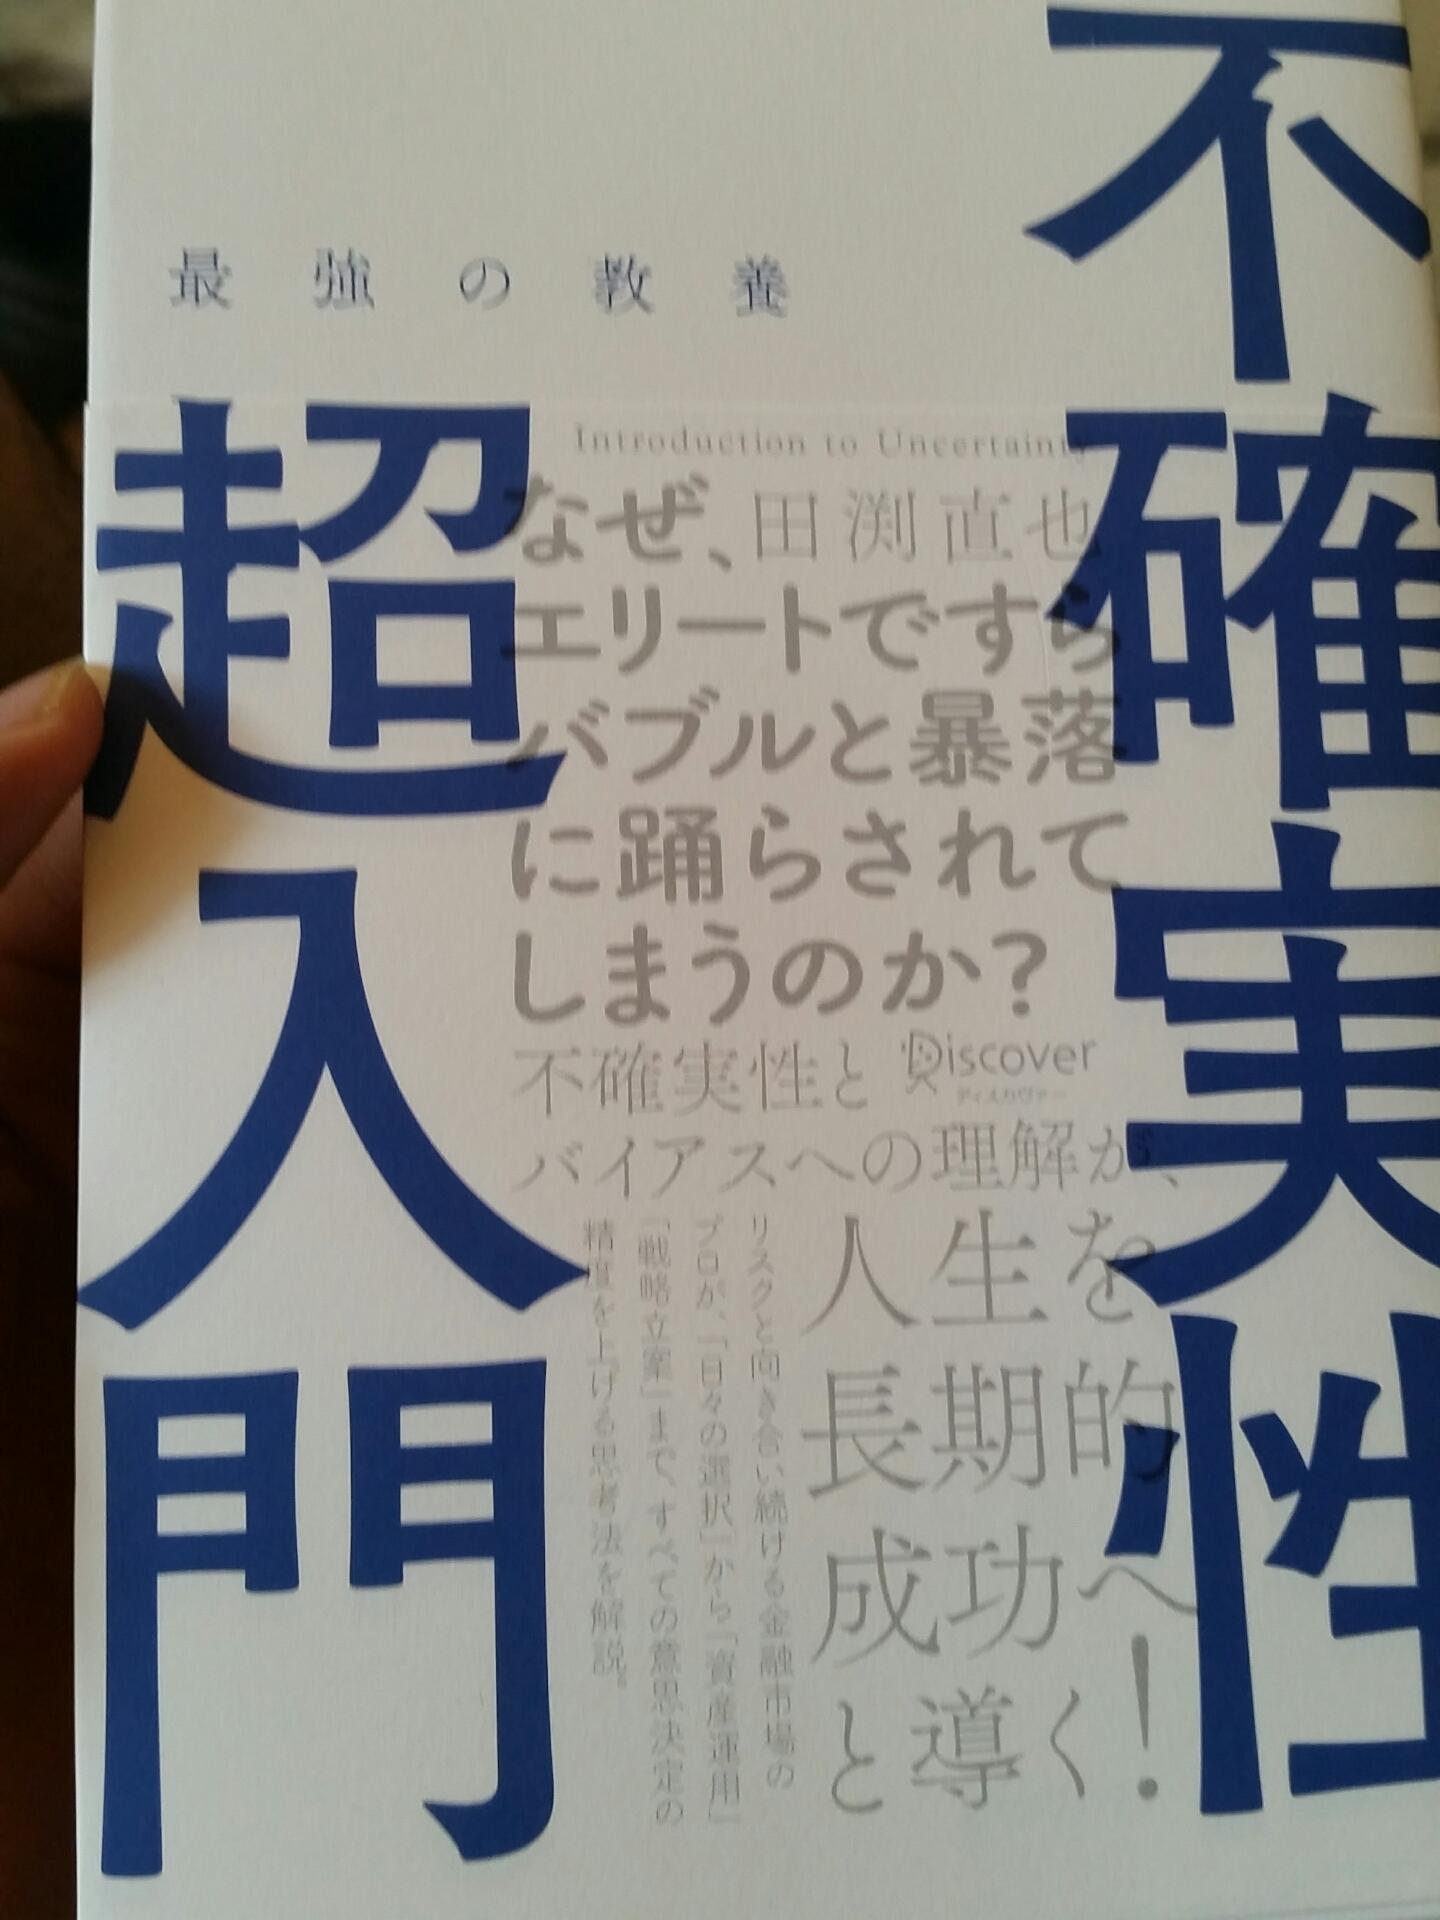 最強の教養
不確実性
超入門
Introduction to Uncertainty
田渕直也
なぜ、
エリートですら
バブルと暴落
に踊らされて
しまうのか?
Discover
ディスカヴァー
不確実性と
バイアスへの理解が、
人生を
長期的
成功へ
と導く!
リスクと向き合い続ける金融市場の
プロが、「日々の選択」から「資産運用」
「戦略立案」まで、すべての意思決定の
精度を上げる思考法を解説。